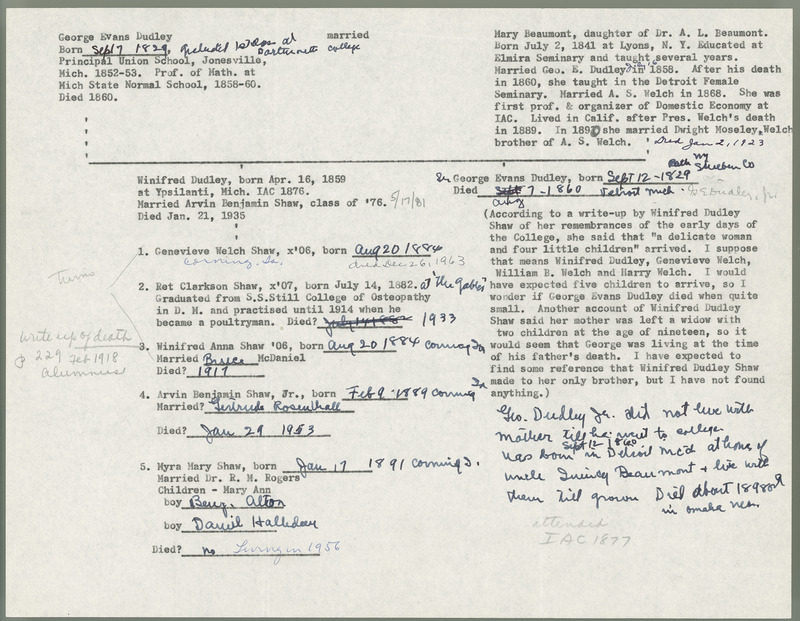 George Evans Dudley married
Born Sept 7 1829, included 1st class at
Dartmouth college
Principal Union School, Jonesville,
Mich. 1852-53. Prof. of Math. at
Mich State Normal School, 1858-60.
Died 1860.
Mary Beaumont, daughter of Dr. A. L. Beaumont.
Born July 2, 1841 at Lyons, N. Y. Educated at
Elmira Seminary and taught several years.
Married Geo. E. Dudley in 1858. After his death
in 1860, she taught in the Detroit Female
Seminary. Married A. S. Welch in 1868. She was
first prof. & organizer of Domestic Economy at
IAC. Lived in Calif. after Pres. Welch's death
in 1889. In 1890 she married Dwight Moseley Welch
brother of A. S. Welch. Died Jan 2, 1923
Winifred Dudley, born Apr. 16, 1859
at Ypsilanti, Mich. IAC 1876.
Married Arvin Benjamin Shaw, class of '76. 5/17/81
Died Jan. 21, 1935
1. Genevieve Welch Shaw, x'06, born Aug 20 1884
Corning, Ia. died Dec 26, 1963
Turns
2. Ret Clarkson Shaw, x'07, born July 14, 1882. at "the Gables"
Graduated from S.S.Still College of Osteopathy
in D. M. and practised until 1914 when he
became a poultryman. Died? July 14 1882 1933
write up of death
p 229 Feb 1918
Alumnus
3. Winifred Anna Shaw '06, born Aug 20 1884 corning Ia
Married Bruce McDaniel
Died? 1917
4. Arvin Benjamin Shaw, Jr., born Feb 9 - 1889 corning Ia
Married? Gertrude Rosenthall
Died? Jan 29 1953
5. Myra Mary Shaw, born Jan 17 1891 corning I.
Married Dr. R. M. Rogers
Children - Mary Ann
boy Benj. Alton
boy Daniel Halliday
Died? no Living in 1956
Bath NY
Steuben Co
George Evans Dudley, born Sept 12 - 1829
Died Sept 7 - 1860 Detroit Mich.
Aug
(According to a write-up by Winifred Dudley
Shaw of her remembrances of the early days of
the College, she said that "a delicate woman
and four little children" arrived. I suppose
that means Winifred Dudley, Genevieve Welch,
William B. Welch and Harry Welch. I would
have expected five children to arrive, so I
wonder if George Evans Dudley died when quite
small. Another account of Winifred Dudley
Shaw said her mother was left a widow with
two children at the age of nineteen, so it
would seem that George was living at the time
of his father's death. I have expected to
find some reference that Winifred Dudley Shaw
made to her only brother, but I have not found
anything.)
Geo. Dudley Jr. did not live with
mother till he went to college
Sept 12 1860
was born in Detroit Mich at home of
uncle Quincy Beaumont & live with
them till grown Died about 1898
in omaha Neb.
attended
IAC 1877